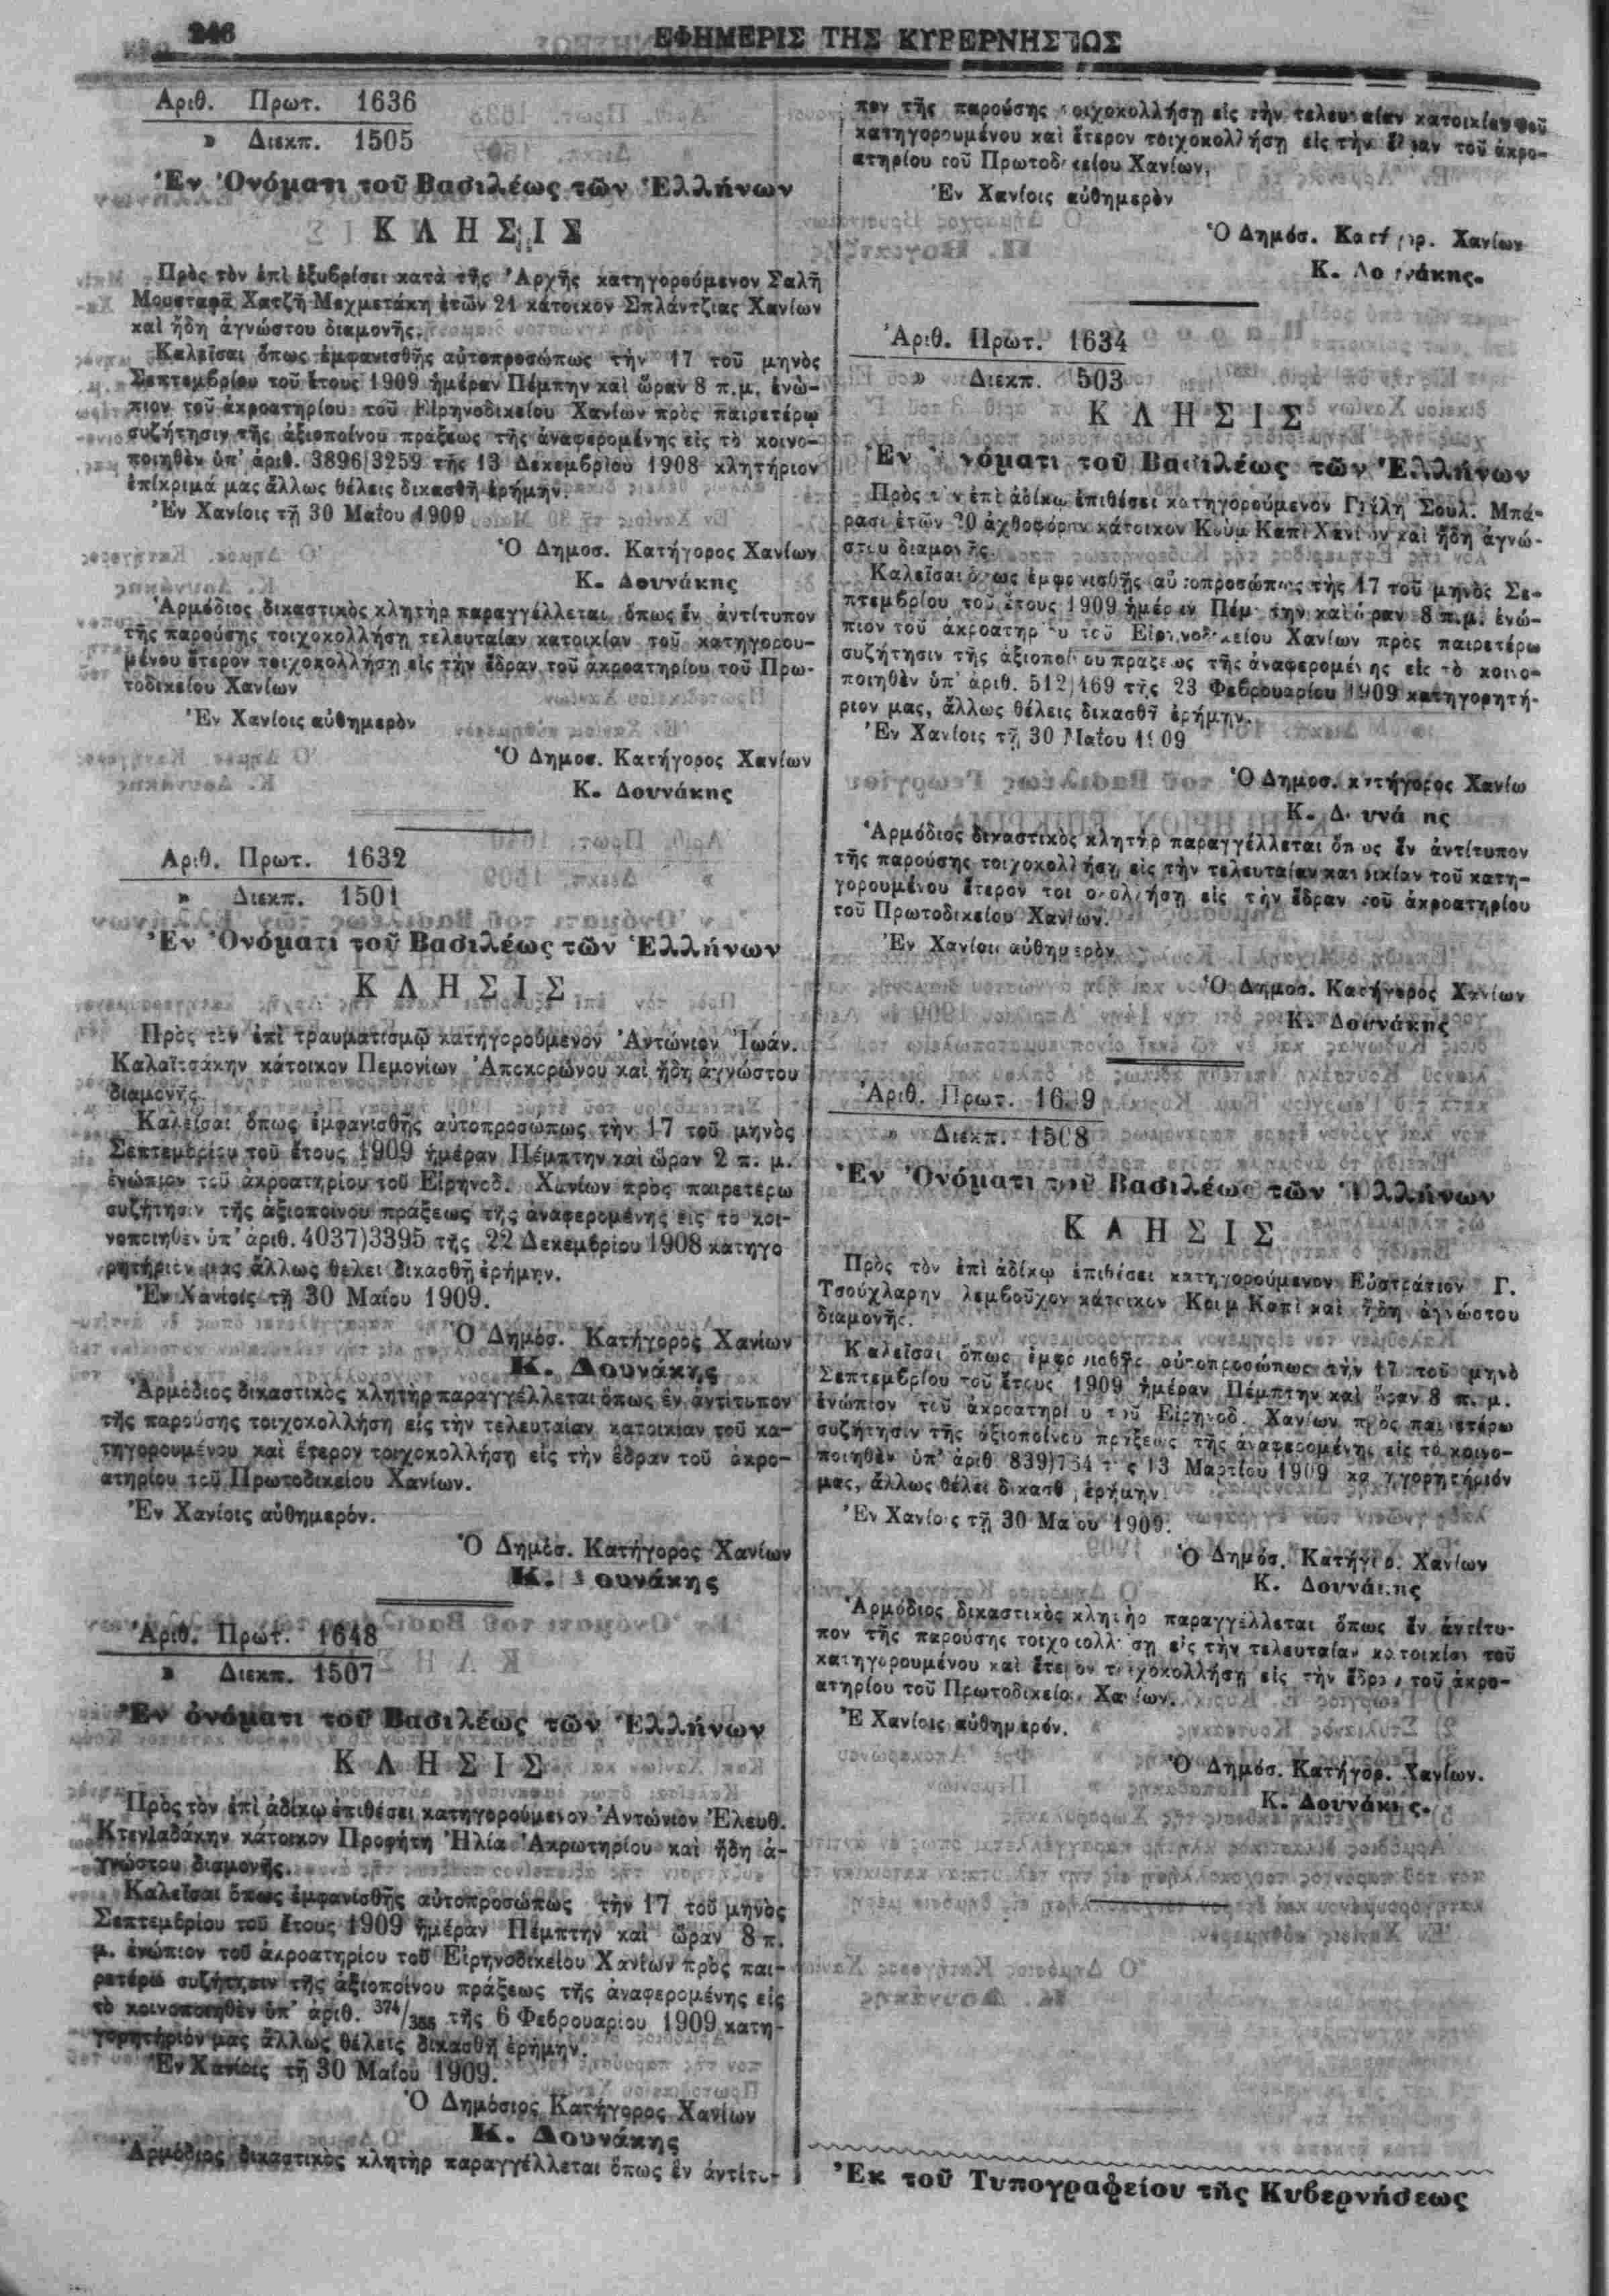 246
ΕΦΗΜΕΡΙΣ ΤΗΣ ΚΥΒΕΡΝΗΣΕΩΣ
Αριθ. Πρωτ. 1636
» Διεκπ. 1505
Ἐν Ὀνόματι τοῦ Βασιλέως τῶν Ἑλλήνων
ΚΛΗΣΙΣ
Πρὸς τὸν ἐπὶ ἐξυβρίσει κατὰ τῆς Ἀρχῆς κατηγορούμενον Σαλῆ
Μουσταφᾶ Χατζῆ Μεχμετάκη ἐτῶν 21 κάτοικον Σπλάντζιας Χανίων
καὶ ἤδη ἀγνώστου διαμονῆς.
Καλεῖσαι ὅπως ἐμφανισθῆς αὐτοπροσώπως τὴν 17 τοῦ μηνὸς
Σεπτεμβρίου τοῦ ἔτους 1909 ἡμέραν Πέμπην καὶ ὥραν 8 π.μ. ἐνώ-
πιον τοῦ ἀκροατηρίου τοῦ Εἰρηνοδικείου Χανίων πρὸς παιρετέρω
συζήτησιν τῆς ἀξιοποίνου πράξεως τῆς ἀναφερομένης εἰς τὸ κοινο-
ποιηθὲν ὑπ' ἀριθ. 3896)3259 τῆς 13 Δεκεμβρίου 1908 κλητήριον
ἐπίκριμά μας ἄλλως θέλεις δικασθῆ ἐρήμην.
Ἐν Χανίοις τῇ 30 Μαΐου 1909
Ὁ Δημοσ. Κατήγορος Χανίων
Κ. Δουνάκης
Ἁρμόδιος δικαστικὸς κλητὴρ παραγγέλλεται ὅπως ἓν ἀντίτυπον
τῆς παρούσης τοιχοκολλήσῃ τελευταίαν κατοικίαν τοῦ κατηγορου-
μένου ἕτερον τοιχοκολλήσῃ εἰς τὴν ἕδραν τοῦ ἀκροατηρίου τοῦ Πρω-
τοδικείου Χανίων
Ἐν Χανίοις αὐθημερὸν
Ὁ Δημοσ. Κατήγορος Χανίων
Κ. Δουνάκης
Αριθ. Πρωτ. 1632
» Διεκπ. 1501
Ἐν Ὀνόματι τοῦ Βασιλέως τῶν Ἑλλήνων
ΚΛΗΣΙΣ
Πρὸς τὸν ἐπὶ τραυματισμῷ κατηγορούμενον Ἀντώνιον Ἰωάν.
Καλαϊτσάκην κάτοικον Πεμονίων Ἀποκορώνου καὶ ἤδη ἀγνώστου
διαμονῆς.
Καλεῖσαι ὅπως ἐμφανισθῆς αὐτοπροσώπως τὴν 17 τοῦ μηνὸς
Σεπτεμβρίου τοῦ ἔτους 1909 ἡμέραν Πέμπτην καὶ ὥραν 2 π. μ.
ἐνώπιον τοῦ ἀκροατηρίου τοῦ Εἰρηνοδ. Χανίων πρὸς παιρετέρω
συζήτησιν τῆς ἀξιοποίνου πράξεως τῆς ἀναφερομένης εἰς τὸ κοι-
νοποιηθὲν ὑπ' ἀριθ. 4037)3395 τῆς 22 Δεκεμβρίου 1908 κατηγο
ρητήριόν μας ἄλλως θέλει δικασθῆ ἐρήμην.
Ἐν Χανίοις τῇ 30 Μαΐου 1909.
Ὁ Δημόσ. Κατήγορος Χανίων
Κ. Δουνάκης
Ἁρμόδιος δικαστικὸς κλητὴρ παραγγέλλεται ὅπως ἓν ἀντίτυπον
τῆς παρούσης τοιχοκολλήσῃ εἰς τὴν τελευταίαν κατοικίαν τοῦ κα-
τηγορουμένου καὶ ἕτερον τοιχοκολλήσῃ εἰς τὴν ἕδραν τοῦ ἀκρο-
ατηρίου τοῦ Πρωτοδικείου Χανίων.
Ἐν Χανίοις αὐθημερόν.
Ὁ Δημόσ. Κατήγορος Χανίων
Κ. Δουνάκης
Ἀριθ. Πρώτ. 1648
» Διεκπ. 1507
Ἐν ὀνόματι τοῦ Βασιλέως τῶν Ἑλλήνων
ΚΛΗΣΙΣ
Πρὸς τὸν ἐπὶ ἀδίκῳ ἐπιθέσει κατηγορούμενον Ἀντώνιον Ἐλευθ.
Κτενιαδάκην κάτοικον Προφήτη Ἠλία Ἀκρωτηρίου καὶ ἤδη ἀ-
γνώστου διαμονῆς.
Καλεῖσαι ὅπως ἐμφανισθῆς αὐτοπροσώπως τὴν 17 τοῦ μηνὸς
Σεπτεμβρίου τοῦ ἔτους 1909 ἡμέραν Πέμπτην καὶ ὥραν 8 π.
μ. ἐνώπιον τοῦ ἀκροατηρίου τοῦ Εἰρηνοδικείου Χανίων πρὸς παι-
ρετέρω συζήτησιν τῆς ἀξιοποίνου πράξεως τῆς ἀναφερομένης εἰς
τὸ κοινοποιηθὲν ὑπ' ἀριθ. 374/355 τῆς 6 Φεβρουαρίου 1909 κατη-
γορητήριόν μας ἄλλως θέλεις δικασθῆ ἐρήμην.
Ἐν Χανίοις τῇ 30 Μαΐου 1909.
Ὁ Δημόσιος Κατήγορος Χανίων
Κ. Δουνάκης
Ἁρμόδιος δικαστικὸς κλητὴρ παραγγέλλεται ὅπως ἓν ἀντίτυ-
πον τῆς παρούσης τοιχοκολλήσῃ εἰς τὴν τελευταίαν κατοικίαν τοῦ
κατηγορουμένου καὶ ἕτερον τοιχοκολλήσῃ εἰς τὴν ἕδραν τοῦ ἀκρο-
ατηρίου τοῦ Πρωτοδικείου Χανίων.
Ἐν Χανίοις αὐθημερὸν
Ὁ Δημόσ. Κατήγορ. Χανίων
Κ. Δουνάκης.
Ἀριθ. Πρωτ. 1634
» Διεκπ. 503
ΚΛΗΣΙΣ
Ἐν Ὀνόματι τοῦ Βασιλέως τῶν Ἑλλήνων
Πρὸς τὸν ἐπὶ ἀδίκῳ ἐπιθέσει κατηγορούμενον Σουλ. Μπά-
ρασι ἐτῶν 20 ἀχθοφόρον κάτοικον Κοὺμ Καπὶ Χανίων καὶ ἤδη ἀγνώ-
στου διαμονῆς.
Καλεῖσαι ὅπως ἐμφανισθῆς αὐτοπροσώπως τῆς 17 τοῦ μηνὸς Σε-
πτεμβρίου τοῦ ἔτους 1909 ἡμέραν Πέμπτην καὶ ὥραν 8 π.μ. ἐνώ-
πιον τοῦ ἀκροατηρίου τοῦ Εἰρηνοδικείου Χανίων πρὸς παιρετέρω
συζήτησιν τῆς ἀξιοποίνου πράξεως τῆς ἀναφερομένης εἰς τὸ κοινο-
ποιηθὲν ὑπ' ἀριθ. 512)469 τῆς 23 Φεβρουαρίου 1909 κατηγορητή-
ριον μας, ἄλλως θέλεις δικασθῆ ἐρήμην.
Ἐν Χανίοις τῇ 30 Μαΐου 1909
Ὁ Δημοσ. κατήγορος Χανίω
Κ. Δουνάκης
Ἁρμόδιος δικαστικὸς κλητὴρ παραγγέλλεται ὅπως ἓν ἀντίτυπον
τῆς παρούσης τοιχοκολλήσῃ εἰς τὴν τελευταίαν κατοικίαν τοῦ κατη-
γορουμένου ἕτερον τοιχοκολλήσῃ εἰς τὴν ἕδραν τοῦ ἀκροατηρίου
τοῦ Πρωτοδικείου Χανίων.
Ἐν Χανίοις αὐθημερὸν
Ὁ Δημοσ. Κατήγορος Χανίων
Κ. Δουνάκης
Ἀριθ. Πρωτ.
» Διεκπ. 1508
Ἐν Ὀνόματι τοῦ Βασιλέως τῶν Ἑλλήνων
ΚΛΗΣΙΣ
Πρὸς τὸν ἐπὶ ἀδίκῳ ἐπιθέσει κατηγορούμενον Εὐστράτιον Γ.
Τσούχλαρην λεμβοῦχον κάτοικον Κουμ Καπὶ καὶ ἤδη ἀγνώστου
διαμονῆς.
Καλεῖσαι ὅπως ἐμφανισθῆς αὐτοπροσώπως τὴν 17 τοῦ μηνὸ
Σεπτεμβρίου τοῦ ἔτους 1909 ἡμέραν Πέμπτην καὶ ὥραν 8 π. μ.
ἐνώπιον τοῦ ἀκροατηρίου τοῦ Εἰρηνοδ. Χανίων πρὸς παιρετέρω
συζήτησιν τῆς ἀξιοποίνου πράξεως τῆς ἀναφερομένης εἰς τὸ κοινο-
ποιηθὲν ὑπ' ἀριθ 839)764 τῆς 13 Μαρτίου 1909 κατηγορητήριόν
μας, ἄλλως θέλει δικασθῆ ἐρήμην
Ἐν Χανίοις τῇ 30 Μαΐου 1909.
Ὁ Δημόσ. Κατήγορ. Χανίων
Κ. Δουνάκης
Ἁρμόδιος δικαστικὸς κλητὴρ παραγγέλλεται ὅπως ἓν ἀντίτυ-
πον τῆς παρούσης τοιχοκολλήσῃ εἰς τὴν τελευταίαν κατοικίαν τοῦ
κατηγορουμένου καὶ ἕτερον τοιχοκολλήσῃ εἰς τὴν ἕδραν τοῦ ἀκρο-
ατηρίου τοῦ Πρωτοδικείου Χανίων.
Ἐ Χανίοις αὐθημερόν.
Ὁ Δημόσ. Κατήγορ. Χανίων.
Κ. Δουνάκης.
Ἐκ τοῦ Τυπογραφείου τῆς Κυβερνήσεως